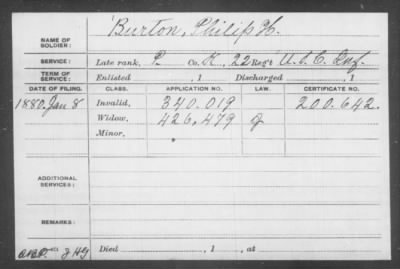 Burton, Philip H.
NAME OF SOLDIER:
SERVICE: Late rank, P. Co. K, 22 Reg't U.S.C. Inf.
TERM OF SERVICE: Enlisted , 1 Discharged , 1
DATE OF FILING. CLASS. APPLICATION NO. LAW. CERTIFICATE NO.
1880. Jan 8 Invalid, 340.019 200.642.
Widow, 426,479
Minor,
ADDITIONAL SERVICES:
REMARKS:
Died , 1 , at